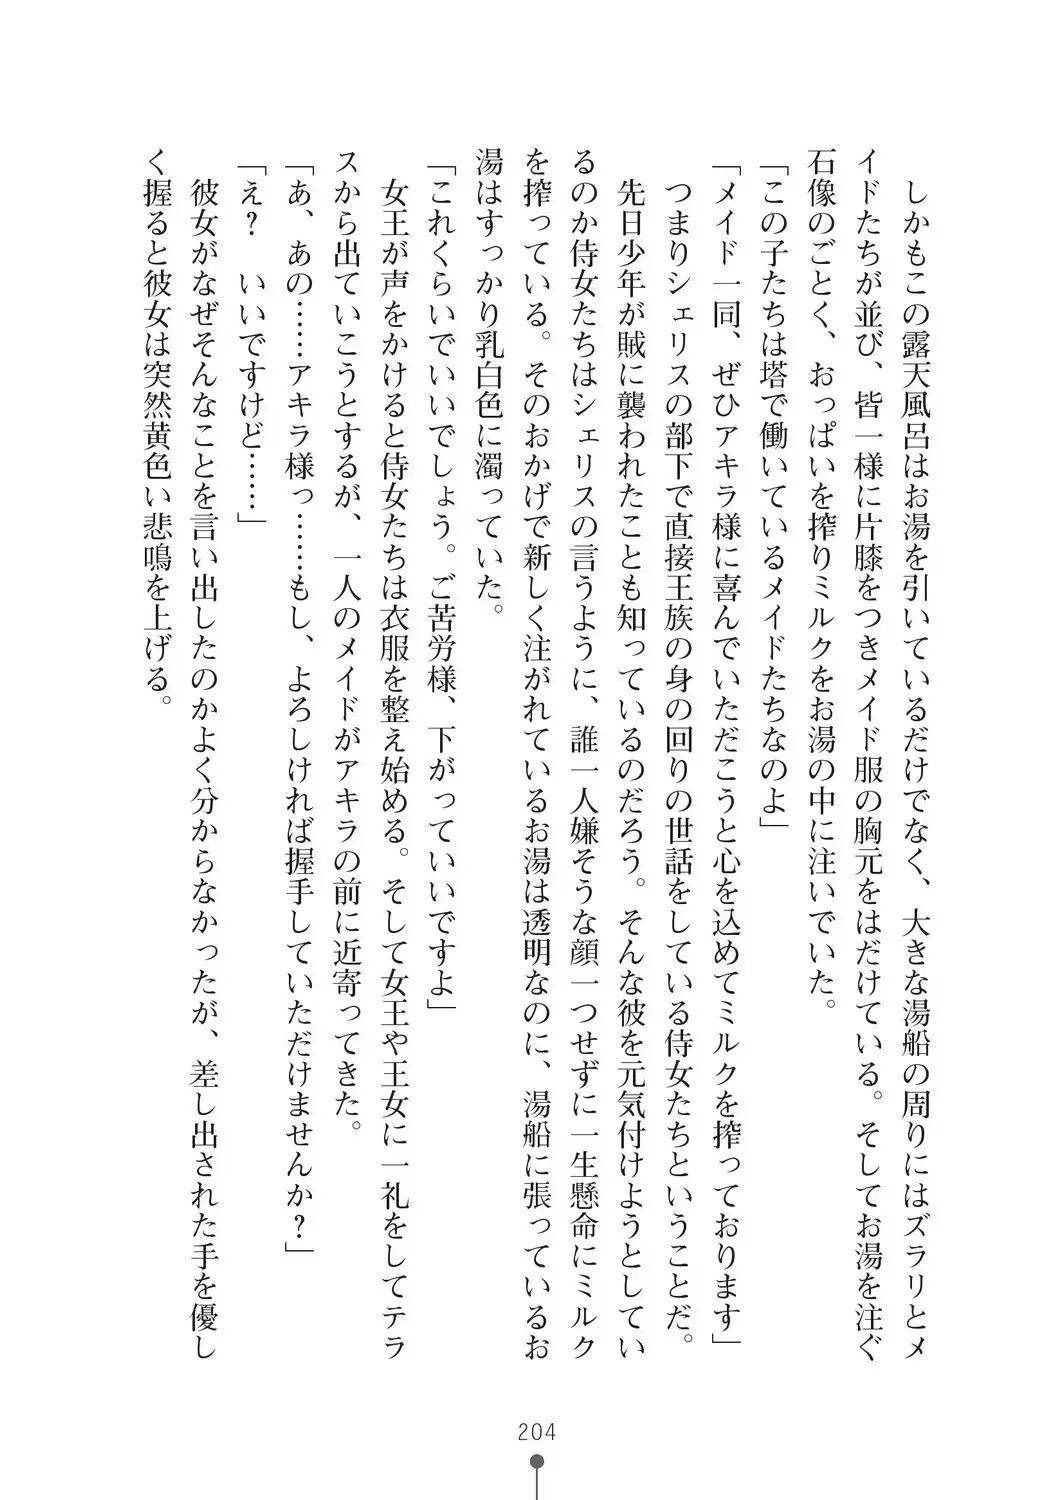 しかもこの露天風呂はお湯を引いているだけでなく、大きな湯船の周りにはズラリとメ
イドたちが並び、皆一様に片膝をつきメイド服の胸元をはだけている。そしてお湯を注ぐ
石像のごとく、おっぱいを搾りミルクをお湯の中に注いでいた。
「この子たちは塔で働いているメイドたちなのよ」
「メイド一同、ぜひアキラ様に喜んでいただこうと心を込めてミルクを搾っております」
　つまりシェリスの部下で直接王族の身の回りの世話をしている侍女たちということだ。
　先日少年が賊に襲われたことも知っているのだろう。そんな彼を元気付けようとしてい
るのか侍女たちはシェリスの言うように、誰一人嫌そうな顔一つせずに一生懸命にミルク
を搾っている。そのおかげで新しく注がれているお湯は透明なのに、湯船に張っているお
湯はすっかり乳白色に濁っていた。
「これくらいでいいでしょう。ご苦労様、下がっていいですよ」
　女王が声をかけると侍女たちは衣服を整え始める。そして女王や王女に一礼をしてテラ
スから出ていこうとするが、一人のメイドがアキラの前に近寄ってきた。
「あ、あの……アキラ様っ……もし、よろしければ握手していただけませんか？」
「え？　いいですけど……」
　彼女がなぜそんなことを言い出したのかよく分からなかったが、差し出された手を優し
く握ると彼女は突然黄色い悲鳴を上げる。
204